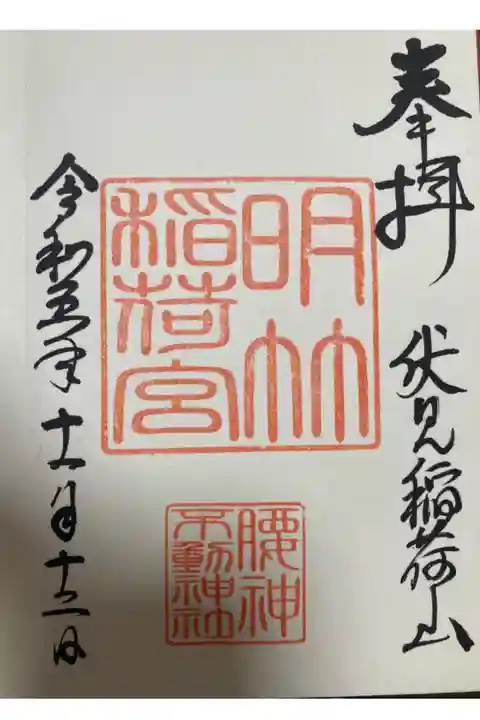 奉拝
伏見稲荷山
明竹
稲荷宮
腰神
不動神社
令和五年十一月十二日